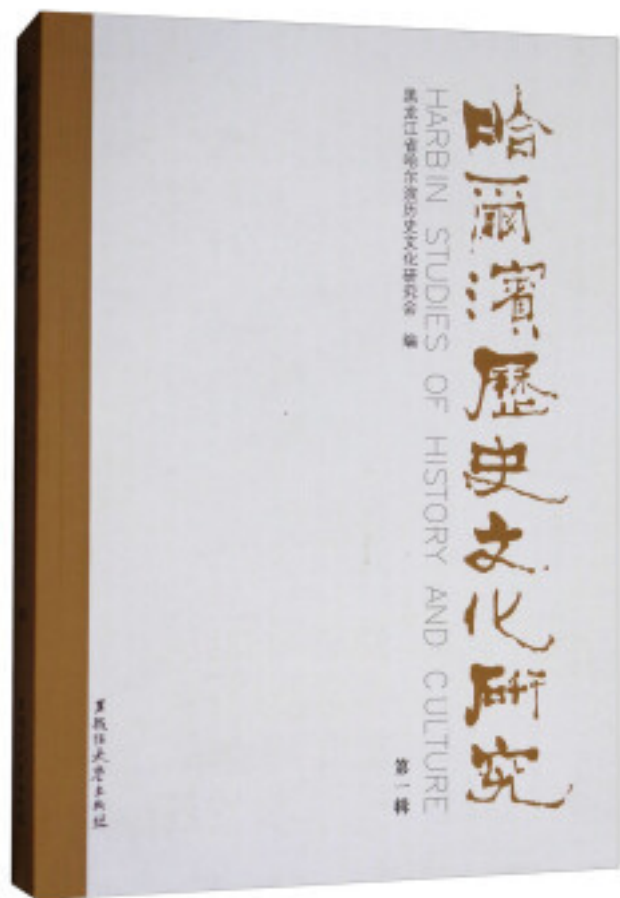 哈爾濱歷史文化研究
HARBIN STUDIES OF HISTORY AND CULTURE
黑龙江省哈尔滨历史文化研究会 编
第一辑
黑龙江大学出版社